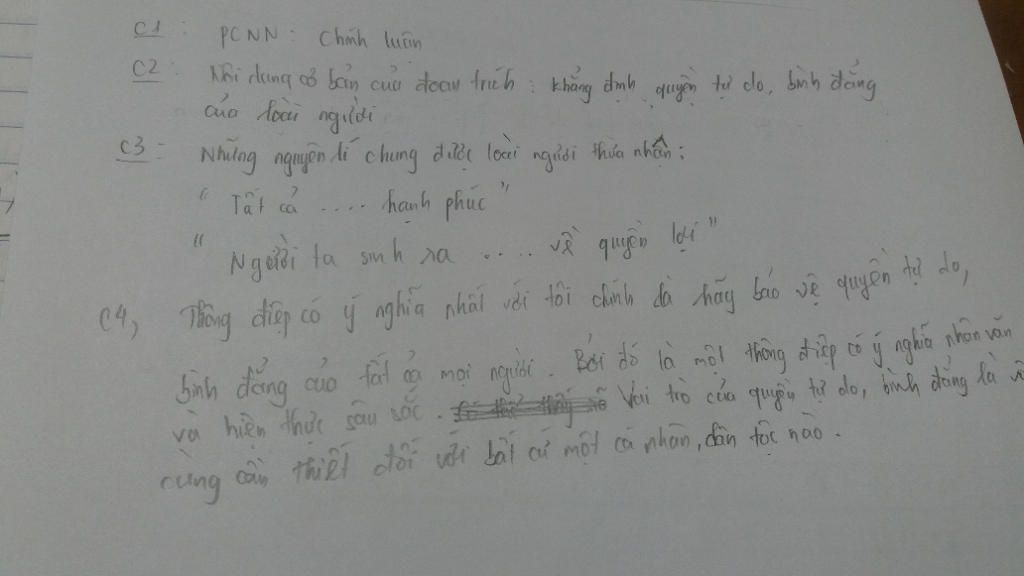 C1: PCNN: Chính luận
C2: Nội dung cơ bản của đoạn trích: khẳng định quyền tự do, bình đẳng
của loài người
C3: Những nguyên lí chung được loài người thừa nhận:
"Tất cả .... hạnh phúc"
"Người ta sinh ra .... về quyền lợi"
C4, Thông điệp có ý nghĩa nhất với tôi chính là hãy bảo vệ quyền tự do,
bình đẳng của tất cả mọi người. Bởi đó là một thông điệp có ý nghĩa nhân văn
và hiện thực sâu sắc. Vai trò của quyền tự do, bình đẳng là vô
cùng cần thiết đối với bất cứ một cá nhân, dân tộc nào.